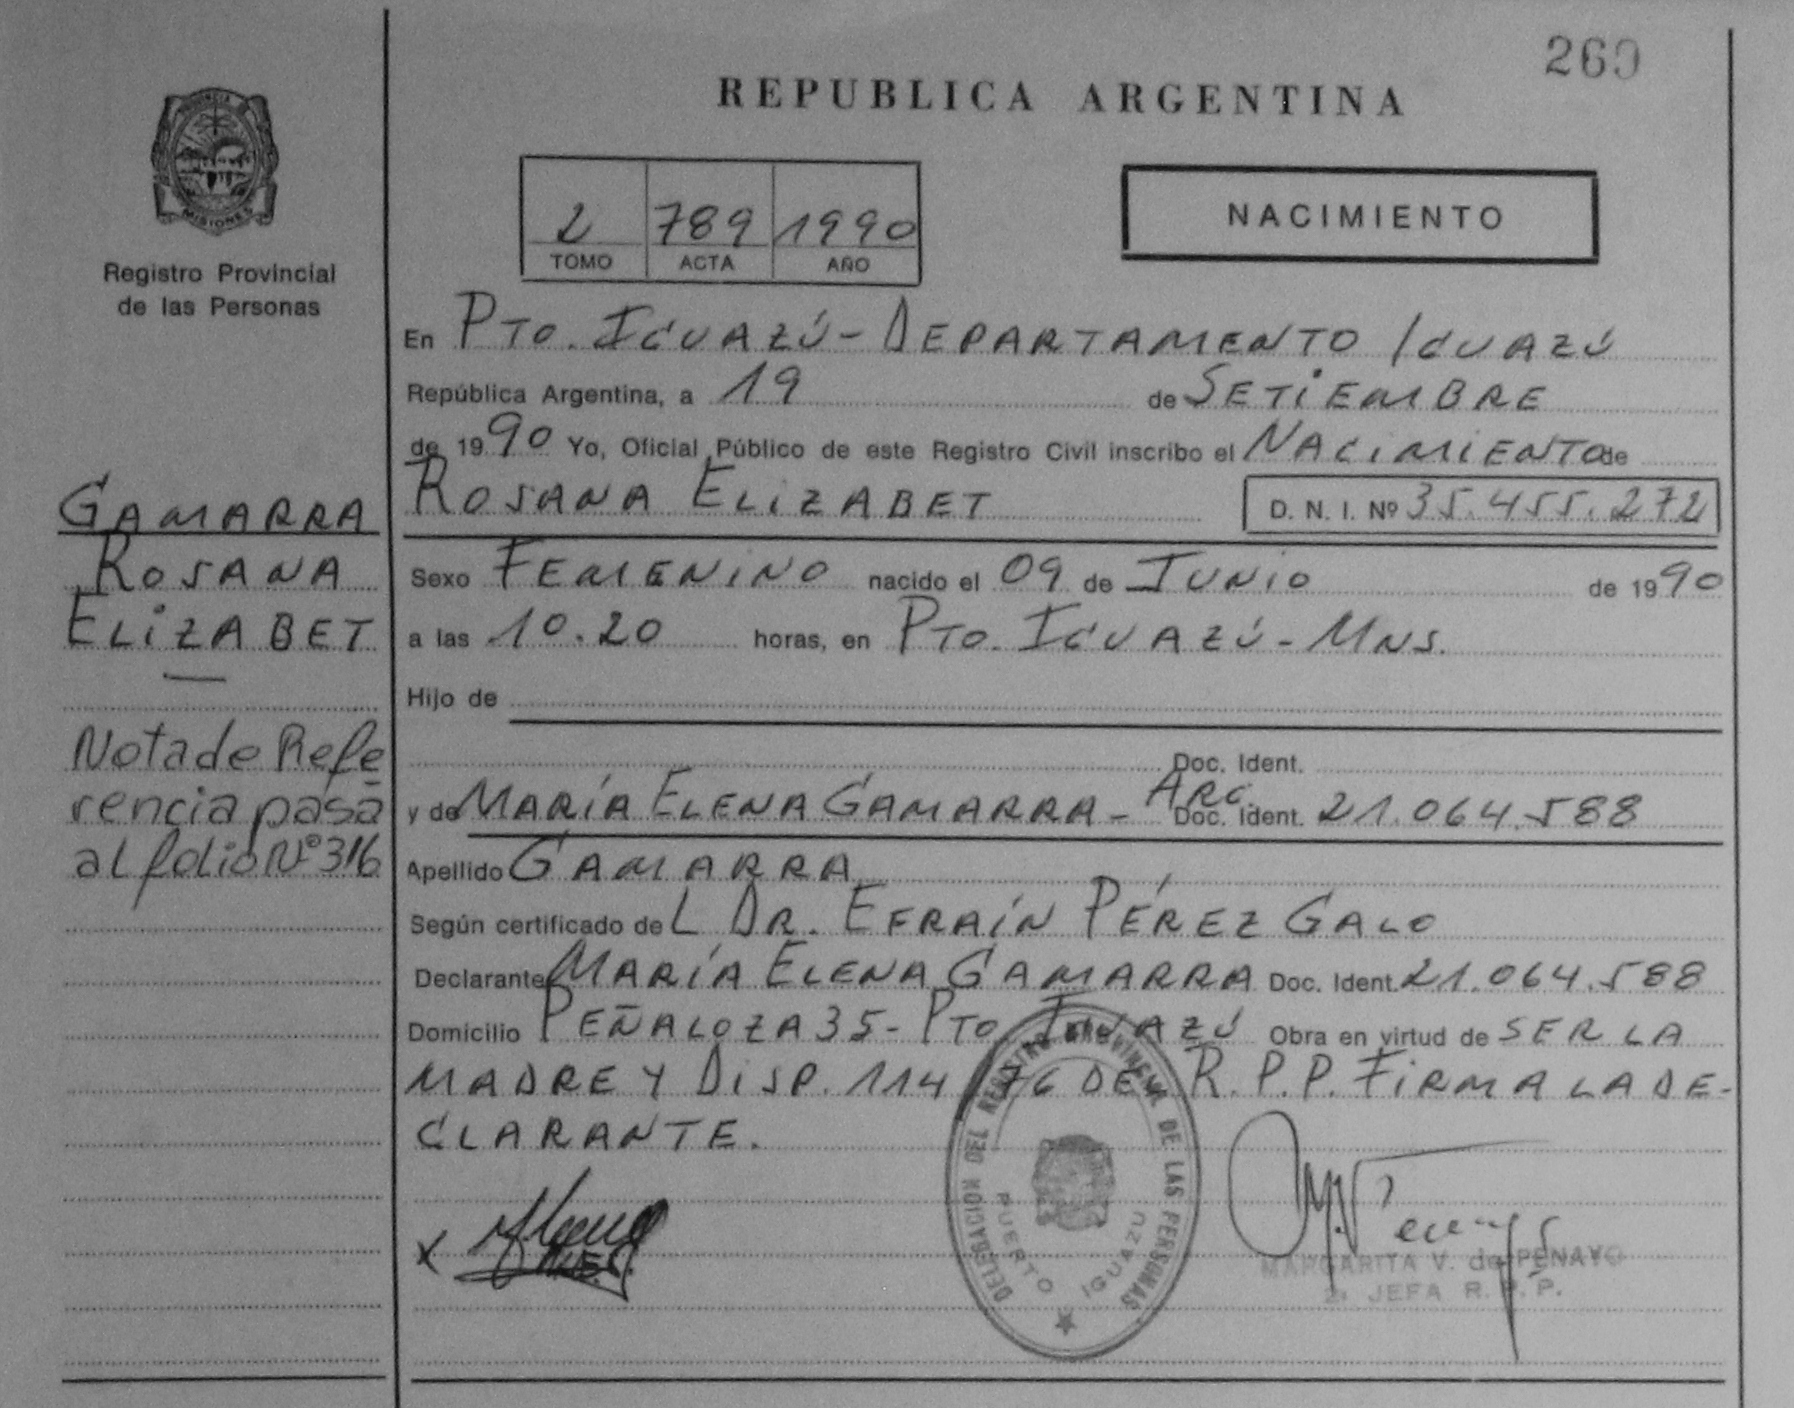 260
REPUBLICA ARGENTINA
MISIONES
Registro Provincial
de las Personas
2 789 1990
TOMO ACTA AÑO
NACIMIENTO
En PTO. IGUAZÚ - DEPARTAMENTO IGUAZÚ
República Argentina, a 19 de SETIEMBRE
de 1990 Yo, Oficial Público de este Registro Civil inscribo el NACIMIENTO de
ROSANA ELIZABET D. N. I. Nº 35.455.272
Sexo FEMENINO nacido el 09 de JUNIO de 1990
a las 10.20 horas, en PTO. IGUAZÚ - MNS.
Hijo de
Doc. Ident.
y de MARÍA ELENA GAMARRA - ARG. Doc. Ident. 21.064.588
Apellido GAMARRA
Según certificado de L DR. EFRAÍN PÉREZ GALO
Declarante MARÍA ELENA GAMARRA Doc. Ident. 21.064.588
Domicilio PEÑALOZA 35 - PTO. IGUAZÚ Obra en virtud de SER LA
MADRE Y DISP. 114/76 DE R.P.P. FIRMA LA DE-
CLARANTE.
GAMARRA
ROSANA
ELIZABET
Nota de Refe
rencia pasa
al folio Nº 316
DELEGACION DEL REGISTRO PROVINCIAL DE LAS PERSONAS
PUERTO IGUAZU
X
MARGARITA V. de PENAYO
JEFA R. P. P.